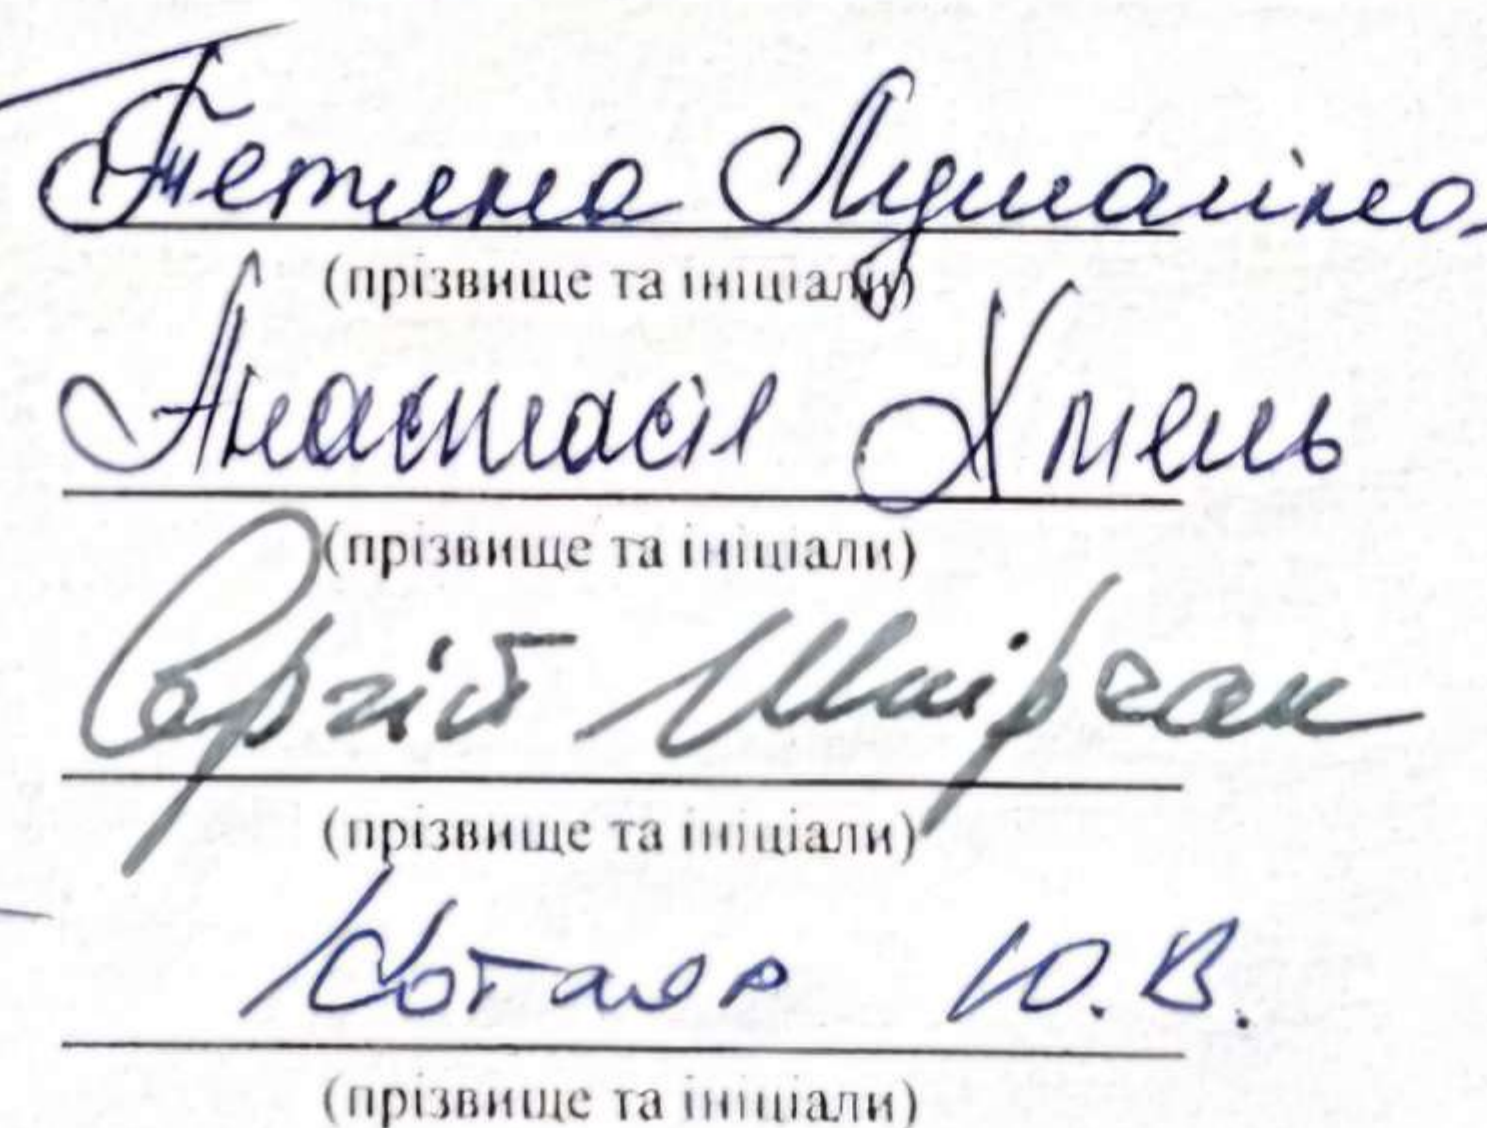 Тетяна
(прізвище та ініціали)
Анастасія Хмель
(прізвище та ініціали)
Сергій
(прізвище та ініціали)
Котляр Ю.В.
(прізвище та ініціали)